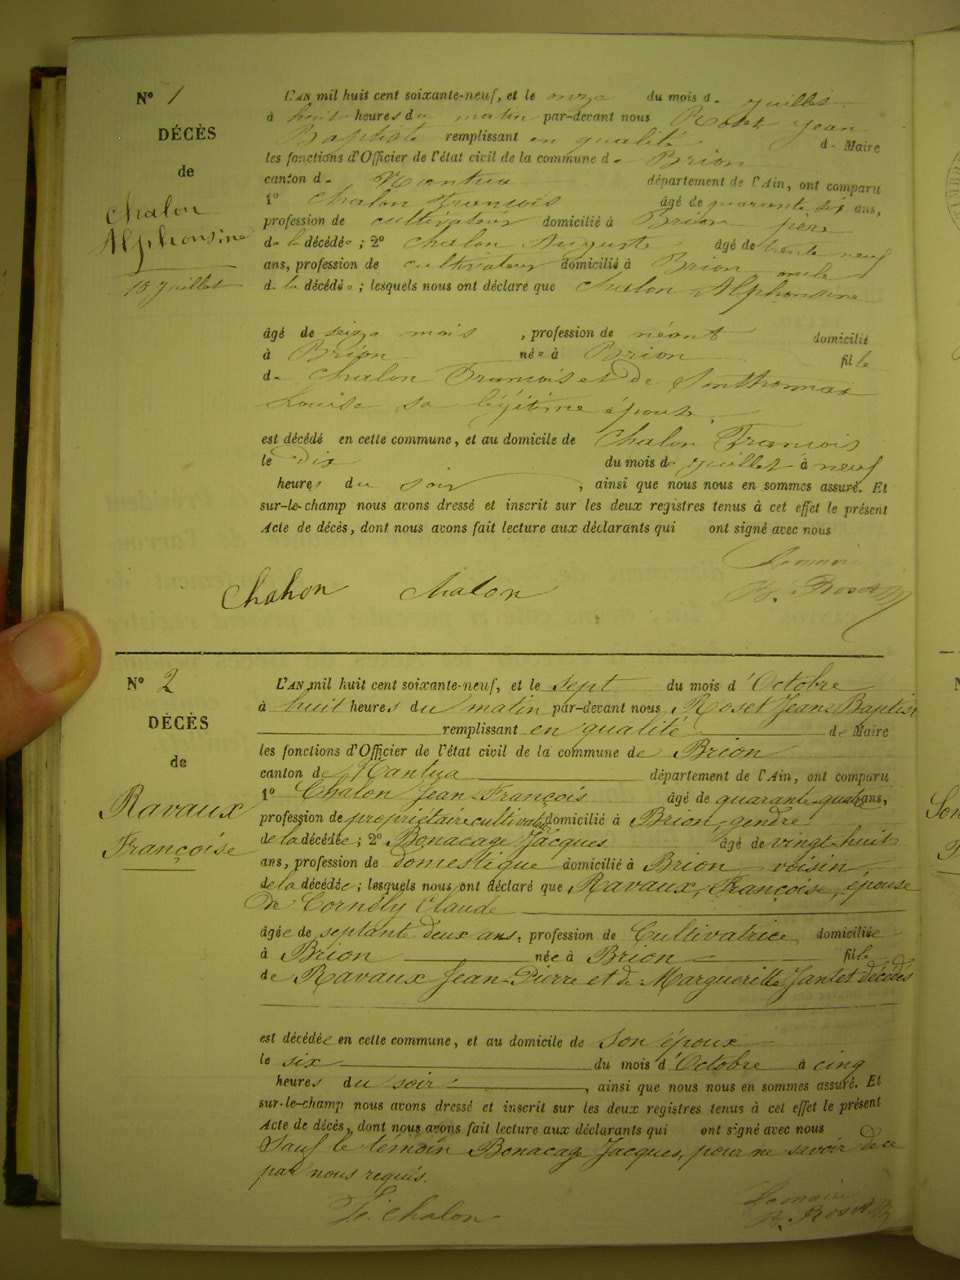 N° 1
DÉCÈS
de
Chalon
Alphonsine
L'AN mil huit cent soixante-neuf, et le onze du mois d. juillet
à huit heures du matin par-devant nous Roset Jean
Baptiste remplissant en qualité de Maire
les fonctions d'Officier de l'état civil de la commune de Brion
canton de Nantua département de l'Ain, ont comparu
1° Chalon François âgé de quarante six ans,
profession de cultivateur domicilié à Brion père
de la décédée ; 2° Chalon Auguste âgé de trente neuf
ans, profession de cultivateur domicilié à Brion oncle
de la décédée ; lesquels nous ont déclaré que Chalon Alphonsine
âgé de seize mois , profession de néant domicilié
à Brion née à Brion fille
de Chalon François et de
Louise sa légitime épouse
est décédé en cette commune, et au domicile de Chalon François
le dix du mois de juillet à neuf
heures du soir , ainsi que nous nous en sommes assuré. Et
sur-le-champ nous avons dressé et inscrit sur les deux registres tenus à cet effet le présent
Acte de décès, dont nous avons fait lecture aux déclarants qui ont signé avec nous
Le maire
Chalon Chalon B. Roset
N° 2
DÉCÈS
de
Ravaux
Françoise
L'AN mil huit cent soixante-neuf, et le sept du mois d'Octobre
à huit heures du matin par-devant nous Roset Jean Baptiste
remplissant en qualité de Maire
les fonctions d'Officier de l'état civil de la commune de Brion
canton de Nantua département de l'Ain, ont comparu
1° Chalon Jean-François âgé de quarante-quatre ans,
profession de propriétaire cultivateur domicilié à Brion, gendre
de la décédée ; 2° Bonacage Jacques âgé de vingt-huit
ans, profession de domestique domicilié à Brion voisin
de la décédée ; lesquels nous ont déclaré que Ravaux, Françoise, épouse
De Cornély Claude
âgée de septante deux ans, profession de Cultivatrice domiciliée
à Brion née à Brion fille
de Ravaux Jean-Pierre et de Marguerite Jantet décédés
est décédée en cette commune, et au domicile de Son époux
le six du mois d'Octobre à cinq
heures du soir , ainsi que nous nous en sommes assuré. Et
sur-le-champ nous avons dressé et inscrit sur les deux registres tenus à cet effet le présent
Acte de décès, dont nous avons fait lecture aux déclarants qui ont signé avec nous
Sauf le témoin Bonacage Jacques, pour ne savoir de ce
par nous requis.
Le maire
Chalon B. Roset